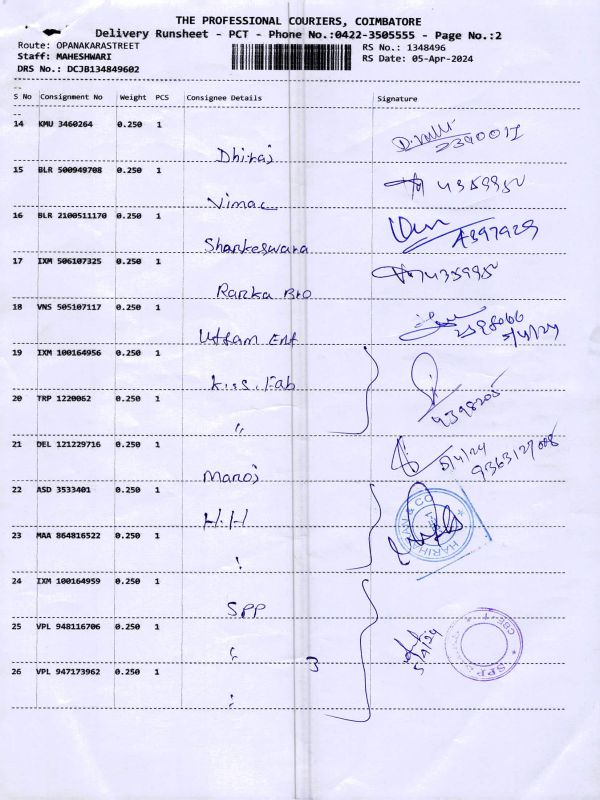 THE PROFESSIONAL COURIERS, COIMBATORE
Delivery Runsheet - PCT - Phone No.:0422-3505555 - Page No.:2
Route: OPANAKARASTREET RS No.: 1348496
Staff: MAHESHWARI RS Date: 05-Apr-2024
DRS No.: DCJB134849602
S No Consignment No Weight PCS Consignee Details Signature
14 KMU 3460264 0.250 1
Dhiraj 2390011
15 BLR 500949708 0.250 1
Vimac 4359950
16 BLR 2100511170 0.250 1
Shankeswara 4397929
17 IXM 506107325 0.250 1
Ranka Bro 435995
18 VNS 505107117 0.250 1
Uttam Ent 5/4/24
19 IXM 100164956 0.250 1
K.S. Fab
20 TRP 1220062 0.250 1
" 9398205
21 DEL 121229716 0.250 1
Manoj 5/4/24
22 ASD 3533401 0.250 1
H.H HARIHARAN & CO
23 MAA 864816522 0.250 1
24 IXM 100164959 0.250 1
SPP
25 VPL 948116706 0.250 1
" 3 5/4/24 SPP CBE-1
26 VPL 947173962 0.250 1